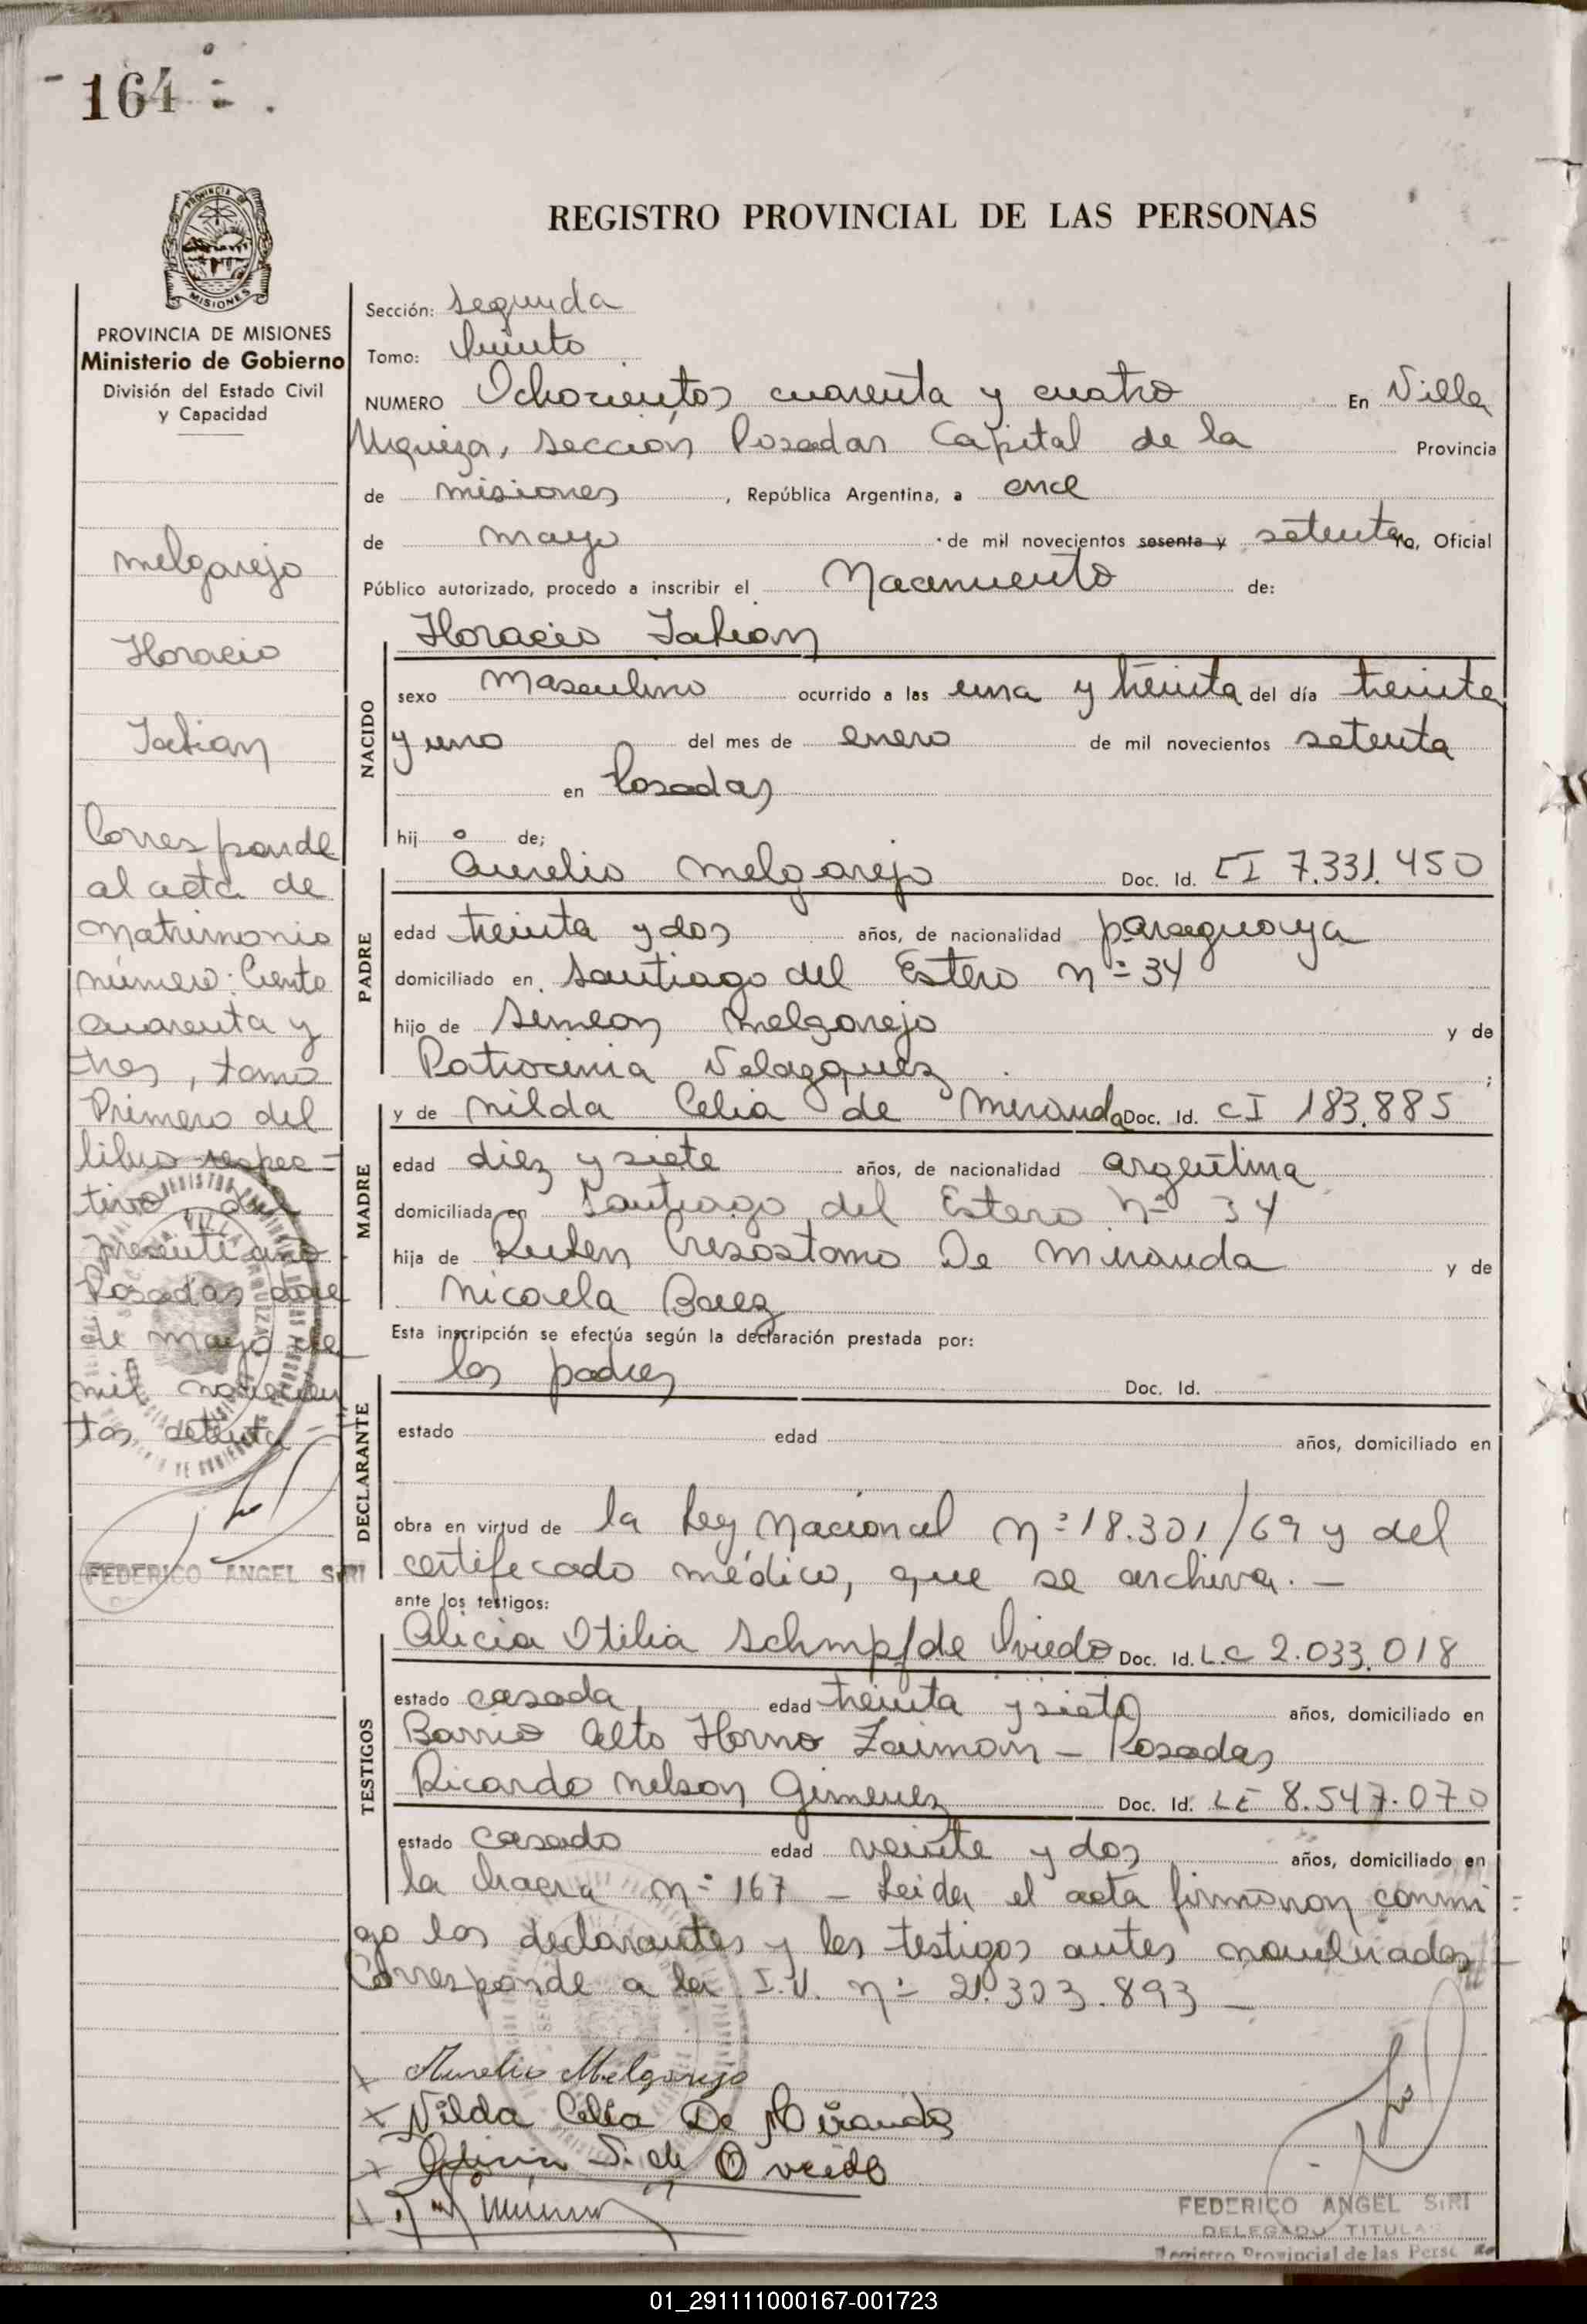 164
REGISTRO PROVINCIAL DE LAS PERSONAS
MISIONES
PROVINCIA DE MISIONES
Ministerio de Gobierno
División del Estado Civil
y Capacidad
melgarejo
Horacio
Corresponde
al acta de
matrimonio
número: Ciento
cuarenta y
tres, tomo
Primero del
libro respec-
tivo, del
presente año
Posadas once
de mayo de
mil novecien
tos setenta -
FEDERICO ANGEL SIRI
Sección: segunda
Tomo: Quinto
NUMERO Ochocientos cuarenta y cuatro En Villa
Urquiza, sección Posadas Capital de la Provincia
de misiones , República Argentina, a once
de mayo de mil novecientos sesenta y setenta yo, Oficial
Público autorizado, procedo a inscribir el Nacimiento de:
Horacio
NACIDO
sexo masculino ocurrido a las una y treinta del día treinta
y uno del mes de enero de mil novecientos setenta
en Posadas
hij o de;
PADRE
Aurelio melgarejo Doc. Id. CI 7.331.450
edad treinta y dos años, de nacionalidad paraguaya
domiciliado en santiago del Estero nº 34
hijo de simeon melgarejo y de
Patrocinia Velazquez ;
MADRE
y de nilda Celia de miranda Doc. Id. CI 183.885
edad diez y siete años, de nacionalidad argentina
domiciliada en santiago del Estero nº 34
hija de Ruben Cresostomo De miranda y de
nicaela Baez
Esta inscripción se efectúa según la declaración prestada por:
DECLARANTE
los padres Doc. Id.
estado edad años, domiciliado en
obra en virtud de la Ley Nacional nº 18.301/69 y del
certificado médico, que se archiva. -
ante los testigos:
TESTIGOS
Alicia Otilia Schmpf de Oviedo Doc. Id. L.C 2.033.018
estado casada edad treinta y siete años, domiciliado en
Barrio Alto Horno Zaiman - Posadas
Ricardo nelson Gimenez Doc. Id. LE 8.547.070
estado casado edad veinte y dos años, domiciliado en
la chacra nº 167 - Leida el acta firmaron conmi =
go los declarantes y los testigos antes nombrados -
Corresponde a la I.V. nº 21.303.893 -
x Aurelio Melgarejo
x Nilda Celia De Miranda
x Alicia S. de Oviedo
FEDERICO ANGEL SIRI
DELEGADO TITULAR
Registro Provincial de las Perso
01_291111000167-001723